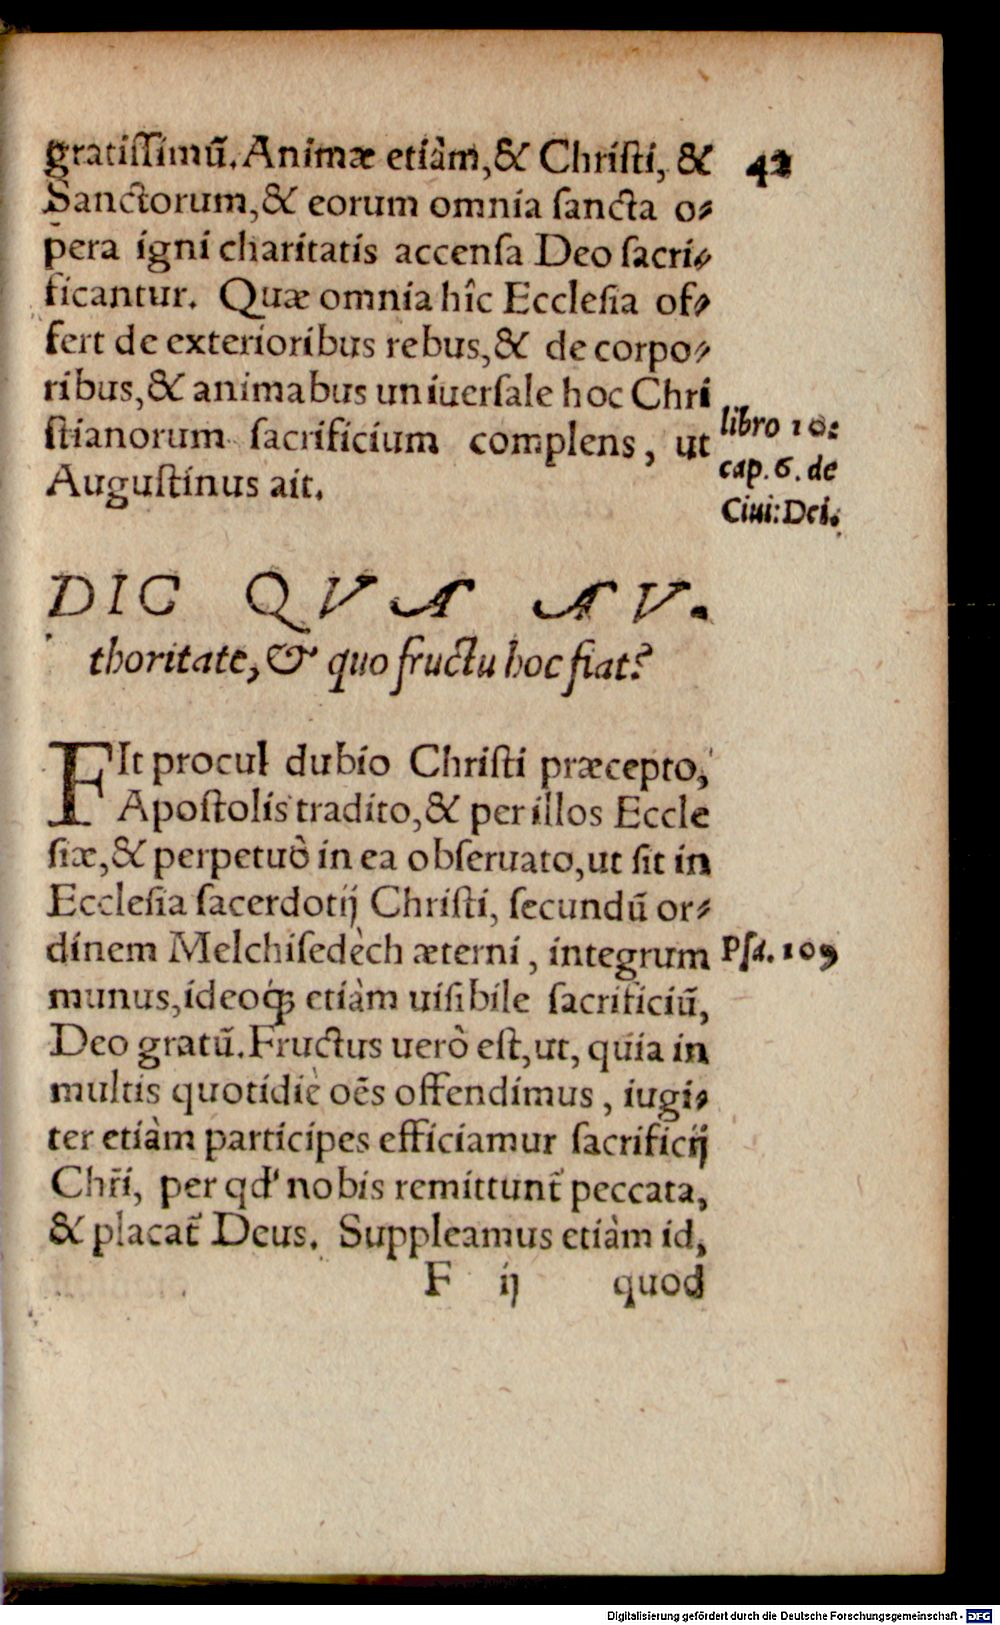 42
gratiſſimũ. Animæ etiàm, & Chriſti, &
Sanctorum, & eorum omnia ſancta o⸗
pera igni charitatis accenſa Deo ſacri⸗
ficantur. Quæ omnia hîc Eccleſia of⸗
fert de exterioribus rebus, & de corpo⸗
ribus, & animabus uniuerſale hoc Chri
ſtianorum ſacrificium complens, ut
Auguſtinus ait.
libro 10:
cap. 6. de
Ciui: Dei.
DIC QVA AV.
thoritate, & quo fructu hoc fiat?
FIt procul dubio Chriſti præcepto,
Apoſtolis tradito, & per illos Eccle
ſiæ, & perpetuò in ea obſeruato, ut ſit in
Eccleſia ſacerdotij Chriſti, ſecundũ or⸗
dinem Melchiſedèch æterni, integrum
munus, ideoq́ꝫ etiàm uiſibile ſacrificiũ,
Deo gratũ. Fructus uerò eſt, ut, quia in
multis quotidiè oẽs offendimus, iugi⸗
ter etiàm participes efficiamur ſacrificij
Chr̃i, per qd' nobis remittunt̃ peccata,
& placat̃ Deus. Suppleamus etiàm id,
Pſa. 109
F ij quod
Digitalisierung gefördert durch die Deutsche Forschungsgemeinschaft - DFG